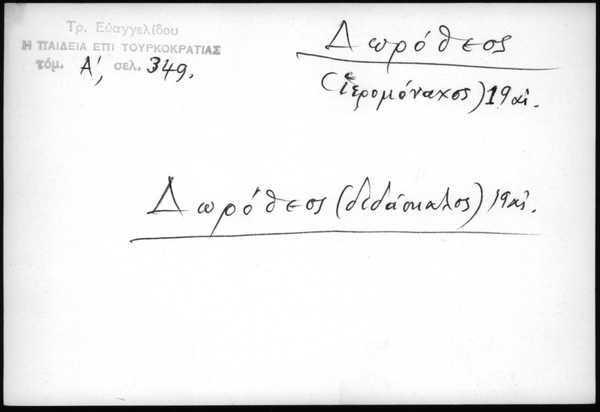 Τρ. Εὐαγγελίδου
Η ΠΑΙΔΕΙΑ ΕΠΙ ΤΟΥΡΚΟΚΡΑΤΙΑΣ
τόμ. Α', σελ. 349.
Δωρόθεος
(ἱερομόναχος) 19 αἰ.
Δωρόθεος (διδάσκαλος) 19 αἰ.